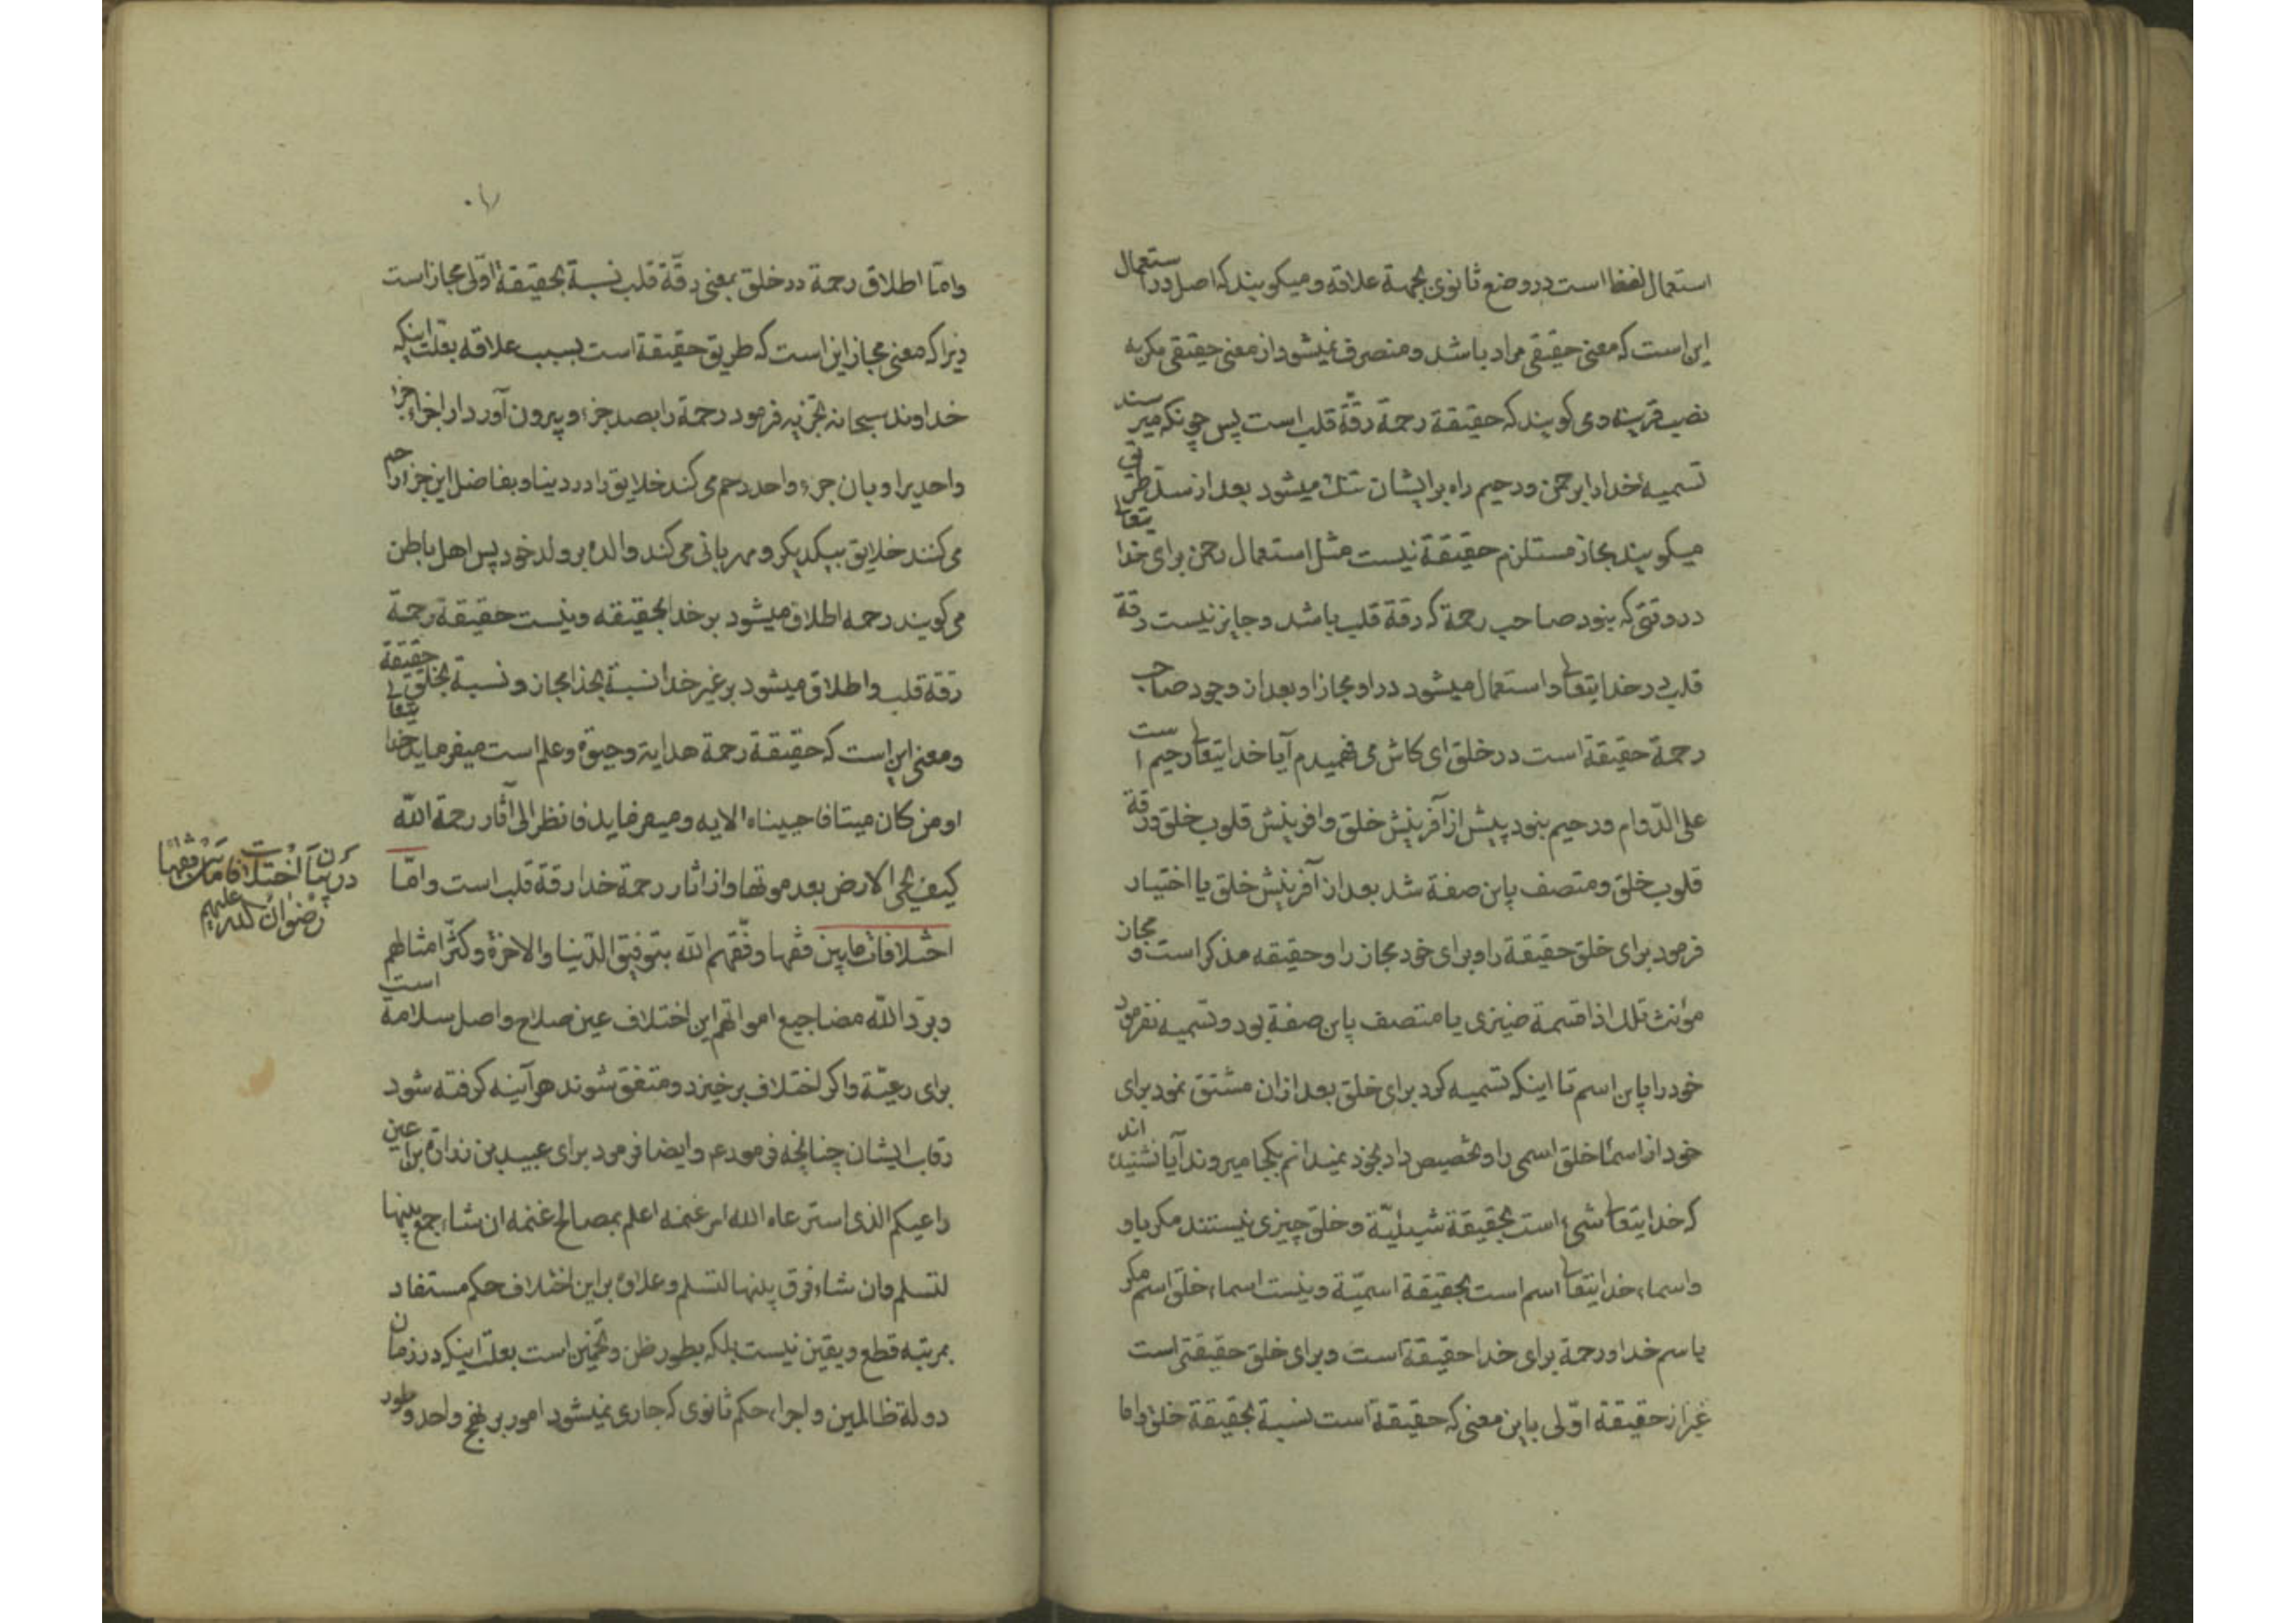 استعمال لفظ است در وضع ثانوی بجهة علاقه و میکویند که اصل در استعمال
این است که معنی حقیقی مراد باشد و منصرف نمیشود از معنی حقیقی مکر به
نصب قرینه و می کویند که حقیقة رحمة رقّة قلب است پس چونکه میرسند
تسمیه خدا را برحمن و رحیم راه بر ایشان تنک میشود بعد از سدّ طریق
میکویند مجاز مستلزم حقیقة نیست مثل استعمال رحمن برای خدا یتعالی
در وقتی که بنود صاحب رحمة که رقة قلب باشد و جایز نیست رقة
قلب در خدا یتعالی و استعمال میشود در او مجازا و بعد از وجود صاحب
رحمة حقیقة است در خلق ای کاش می فهمیدم آیا خدا یتعالی رحیم است
علی الدّوام و رحیم بنود پیش از آفرینش خلق و افرینش قلوب خلق و رقة
قلوب خلق و متصف باین صفة شد بعد از آفرینش خلق یا اختیار
فرمود برای خلق حقیقة را و برای خود مجاز را و حقیقه مذکر است و مجاز
مؤنث تلک اذا قسمة ضیزی یا متصف باین صفة بود و تسمیه نفرمود
خود را باین اسم تا اینکه تسمیه کرد برای خلق بعد از ان مشتق نمود برای
خود از اسماء خلق اسمی را و تخصیص داد بخود نمیدانم بکجا میروند آیا نشنیده اند
که خدا یتعالی شیء است بحقیقة شیئیّة و خلق چیزی نیستند مکر باو
و اسماء خدا یتعالی اسم است بحقیقة اسمیّة و نیست اسماء خلق اسم مکر
باسم خدا و رحمة برای خدا حقیقة است و برای خلق حقیقتی است
غیر از حقیقة اوّلی باین معنی که حقیقة است نسبة بحقیقة خلق و اما
وامّا اطلاق رحمة در خلق بمعنی رقّة قلب نسبة بحقیقة اوّلی مجاز است
زیرا که معنی مجاز این است که طریق حقیقة است بسبب علاقه بعلت اینکه
خداوند سبحانه تجزیه فرمود رحمة را بصد جزء و بیرون آورد از اجزاء جزء
واحدیرا و بان جزء واحد رحم می کند خلایق را در دینا و بفاضل این جزء رحم
می کنند خلایق بیکدیکر و مهربانی می کند والده بر ولد خود پس اهل باطن
می کویند رحمه اطلاق میشود بر خدا بحقیقه و نیست حقیقة رحمة
رقة قلب و اطلاق میشود بر غیر خدا نسبة بخدا مجاز و نسبة بخلق حقیقة
و معنی این است که حقیقة رحمة هدایة و حیوة و علم است میفرماید خدا یتعالی
اومن کان میتا فاحییناه الایه و میفرماید فانظر الی آثار رحمة اللّه
کیف یحی الارض بعد موتها و از اثار رحمة خدا رقة قلب است و امّا
اختلافات مابین فقها وفّقهم اللّه بتوفیق الدّنیا والاخرة وکثّر امثالهم
وبرّد اللّه مضاجیع امواتهم این اختلاف عین صلاح و اصل سلامة است
برای رعیّة و اکر اختلاف بر خیزد و متفق شوند هرآینه کرفته شود
رقاب ایشان چنانچه فرموده و ایضا فرمود برای عبید بن زرارة
راعیکم الذی استرعاه الله امر غنمه اعلم بمصالح غنمه ان شاء جمع بینها
لتسلم وان شاء فرق بینها لتسلم و علاوه بر این اختلاف حکم مستفاد
بمرتبه قطع و یقین نیست بلکه بطور ظن و تخمین است بعلت اینکه در زمان
دولة ظالمین و اجراء حکم ثانوی که جاری نمیشود امور بر نهج واحد و طور
در بیان اختلافات مابین فقها
رضوان اللّه علیهم